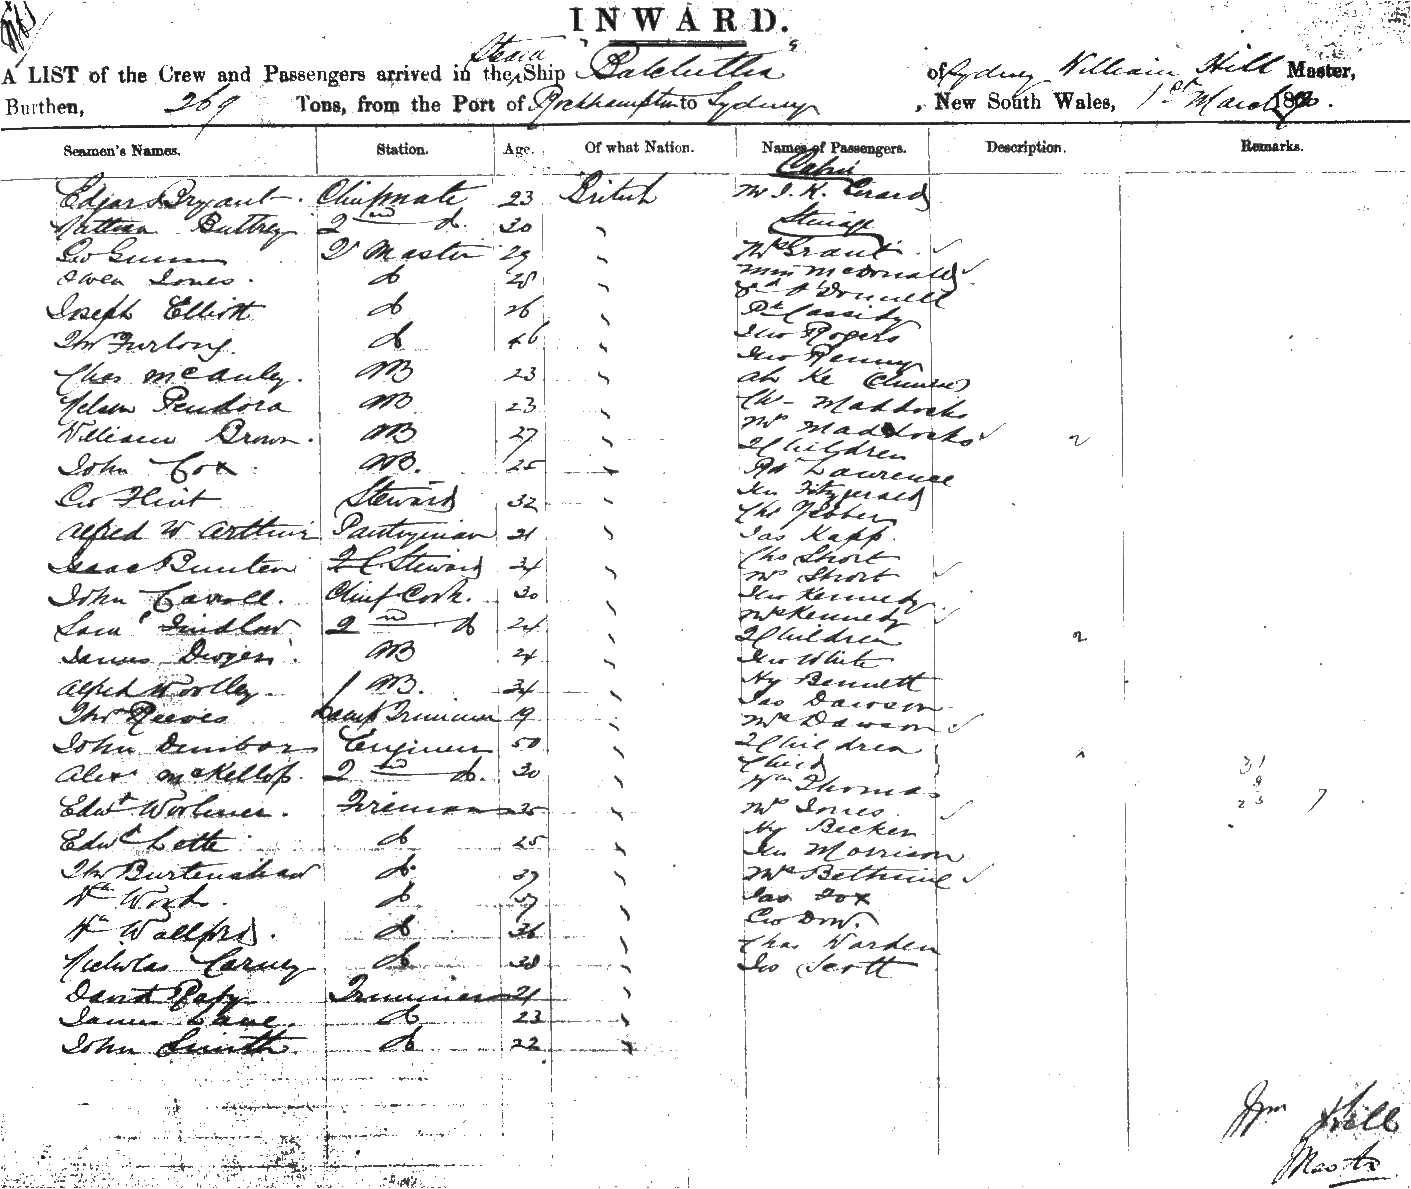 INWARD.
A LIST of the Crew and Passengers arrived in the Steam Ship "Balclutha" of Sydney William Hill Master,
Burthen, 269 Tons, from the Port of Rockhampton to Sydney, New South Wales, 1st March
Seamen's Names. Station. Age. Of what Nation. Names of Passengers. Description. Remarks.
Cabin
Edgar Bryant. Chief mate 23 British Mr J. K. Girard
Steerage
Buttrey 2nd do. 30 "
Geo Gunn Qr Master 29 " Mrs Grant
Owen Jones. do 28 " McDonald
O'Donnell
Joseph Elliott do 26 " Pk Cassidy
Jno Rogers
Thos Furlong. do 46 " Jno Renny
Chas McAuley. AB 23 " Ah Ke (Chinese)
Nelson Pendora AB 23 " Chs Maddocks
William Brown. AB 27 " Mrs Maddocks
2 Children 2
John Cox. AB. 25 " Rd Lawrence
Geo Flint Steward 32 " Jno Fitzgerald
Alfred W Arthur Pantryman 21 "
Jas Kapp.
Isaac Bunten F C Steward 34 " Chs Short
Mrs Short
John Carroll. Chief Cook. 30 " Jno Kennedy
Saml Findlow 2nd do 24 " Mrs Kennedy
2 Children 2
James Dwyer AB 24 " Jno White
Alfred Woolley AB. 34 " Hy Bennett
Thos Reeves Lamp Trimmer 19 " Jas Dawson
Mrs Dawson
John Dunbar Engineer 50 " 2 Children
Alexr McKellop. 2nd do. 30 " Child
Wm Thomas
Edwd Woolmer. Fireman 35 " Mrs Jones
Hy Becker
Edwd Lette do 25 " Jno Morrison
Thos Burtenshaw do. " Mrs Bethune
Wm Word. do " Jas Fox
Wm Wallford. do 36 " Geo Dow.
Chas Warden
Nicholas Carney do 38 " Jno Scott
David Raby Trimmer 21 "
James Lane. do 23 "
John Smith do 22 "
Wm Hill
Master